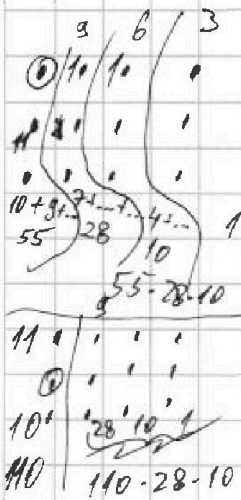 9 6 3
0 1 1
11
10 + 9+... 7+...+... 4+... 1
55 28 10
55 - 28 - 10
9
11
0
10 28 10 1
110 110 - 28 - 10